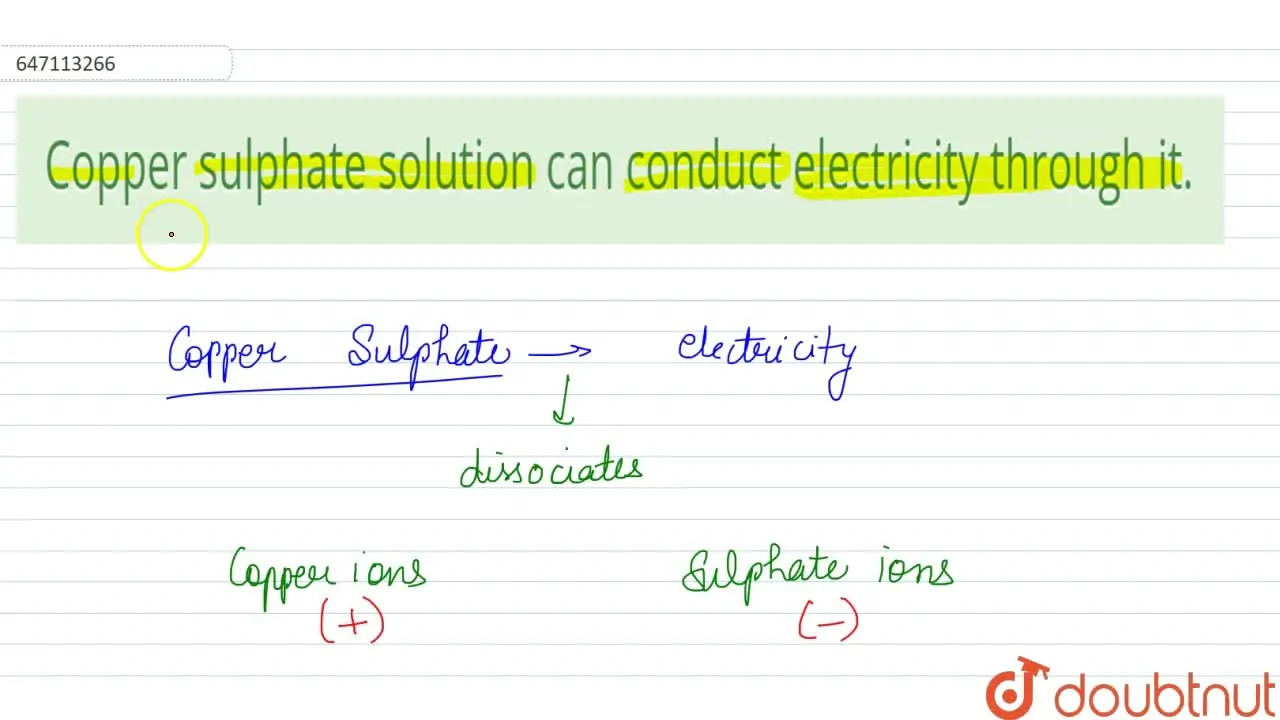 647113266
Copper sulphate solution can conduct electricity through it.
Copper Sulphate → electricity
↓
dissociates
Copper ions Sulphate ions
(+) (-)
doubtnut